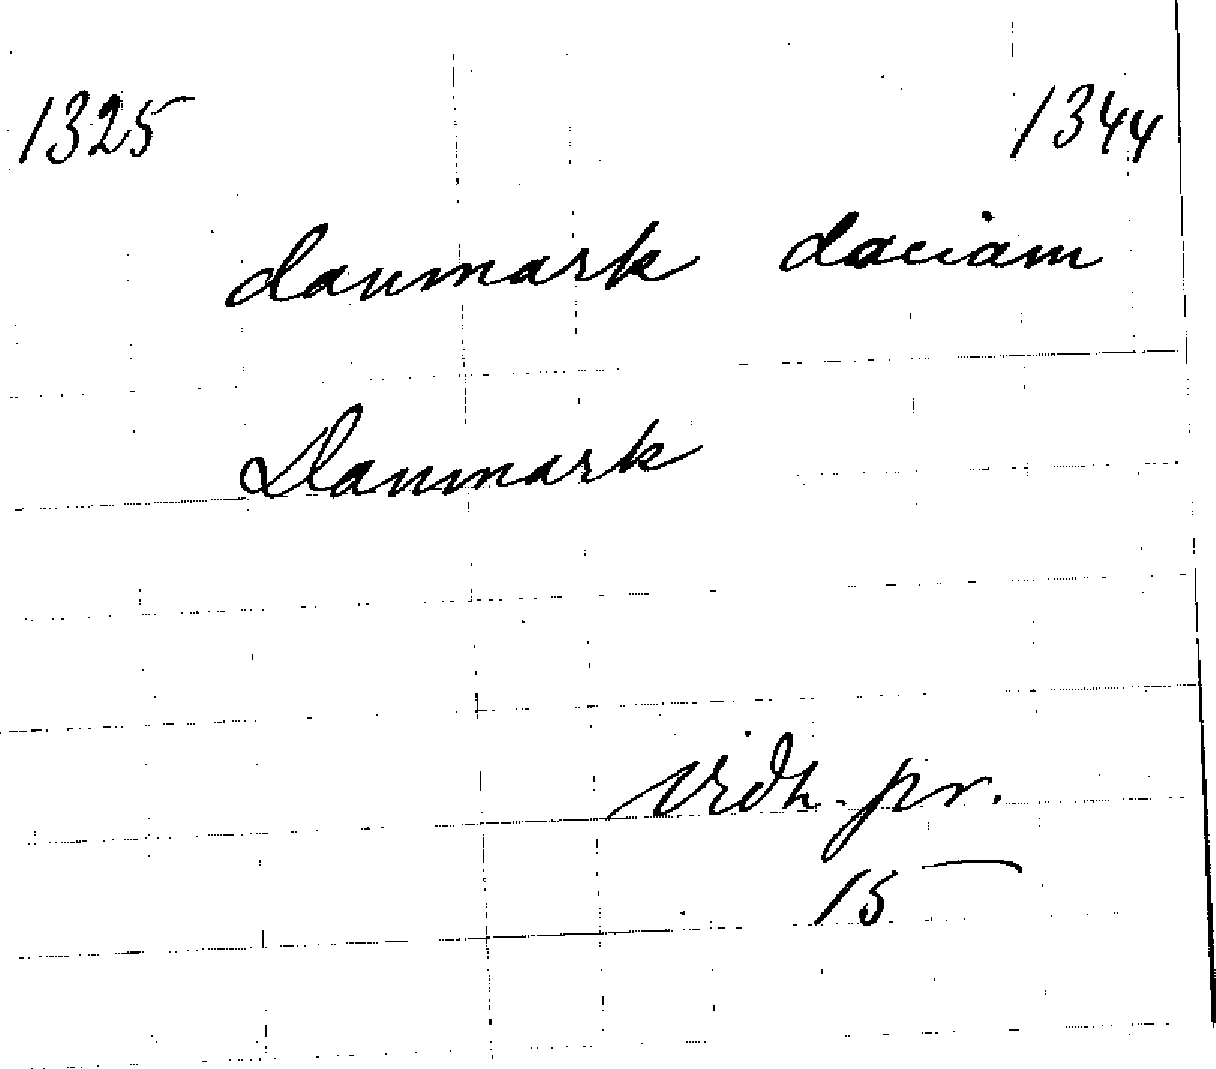 1325 1344
danmark daciam
Danmark
Vidh. pr.
15